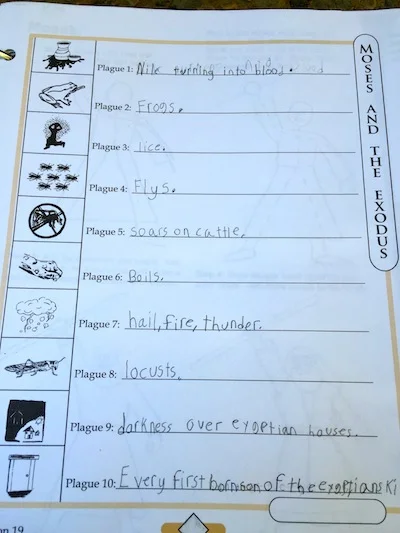 MOSES AND THE EXODUS
Plague 1: Nile turning into blood.
Plague 2: Frogs.
Plague 3: lice.
Plague 4: Flys.
Plague 5: soars on cattle.
Plague 6: Boils.
Plague 7: hail, fire, thunder.
Plague 8: locusts.
Plague 9: darkness over exgptian houses.
Plague 10: Every firstbornson of the exgptians Ki
19